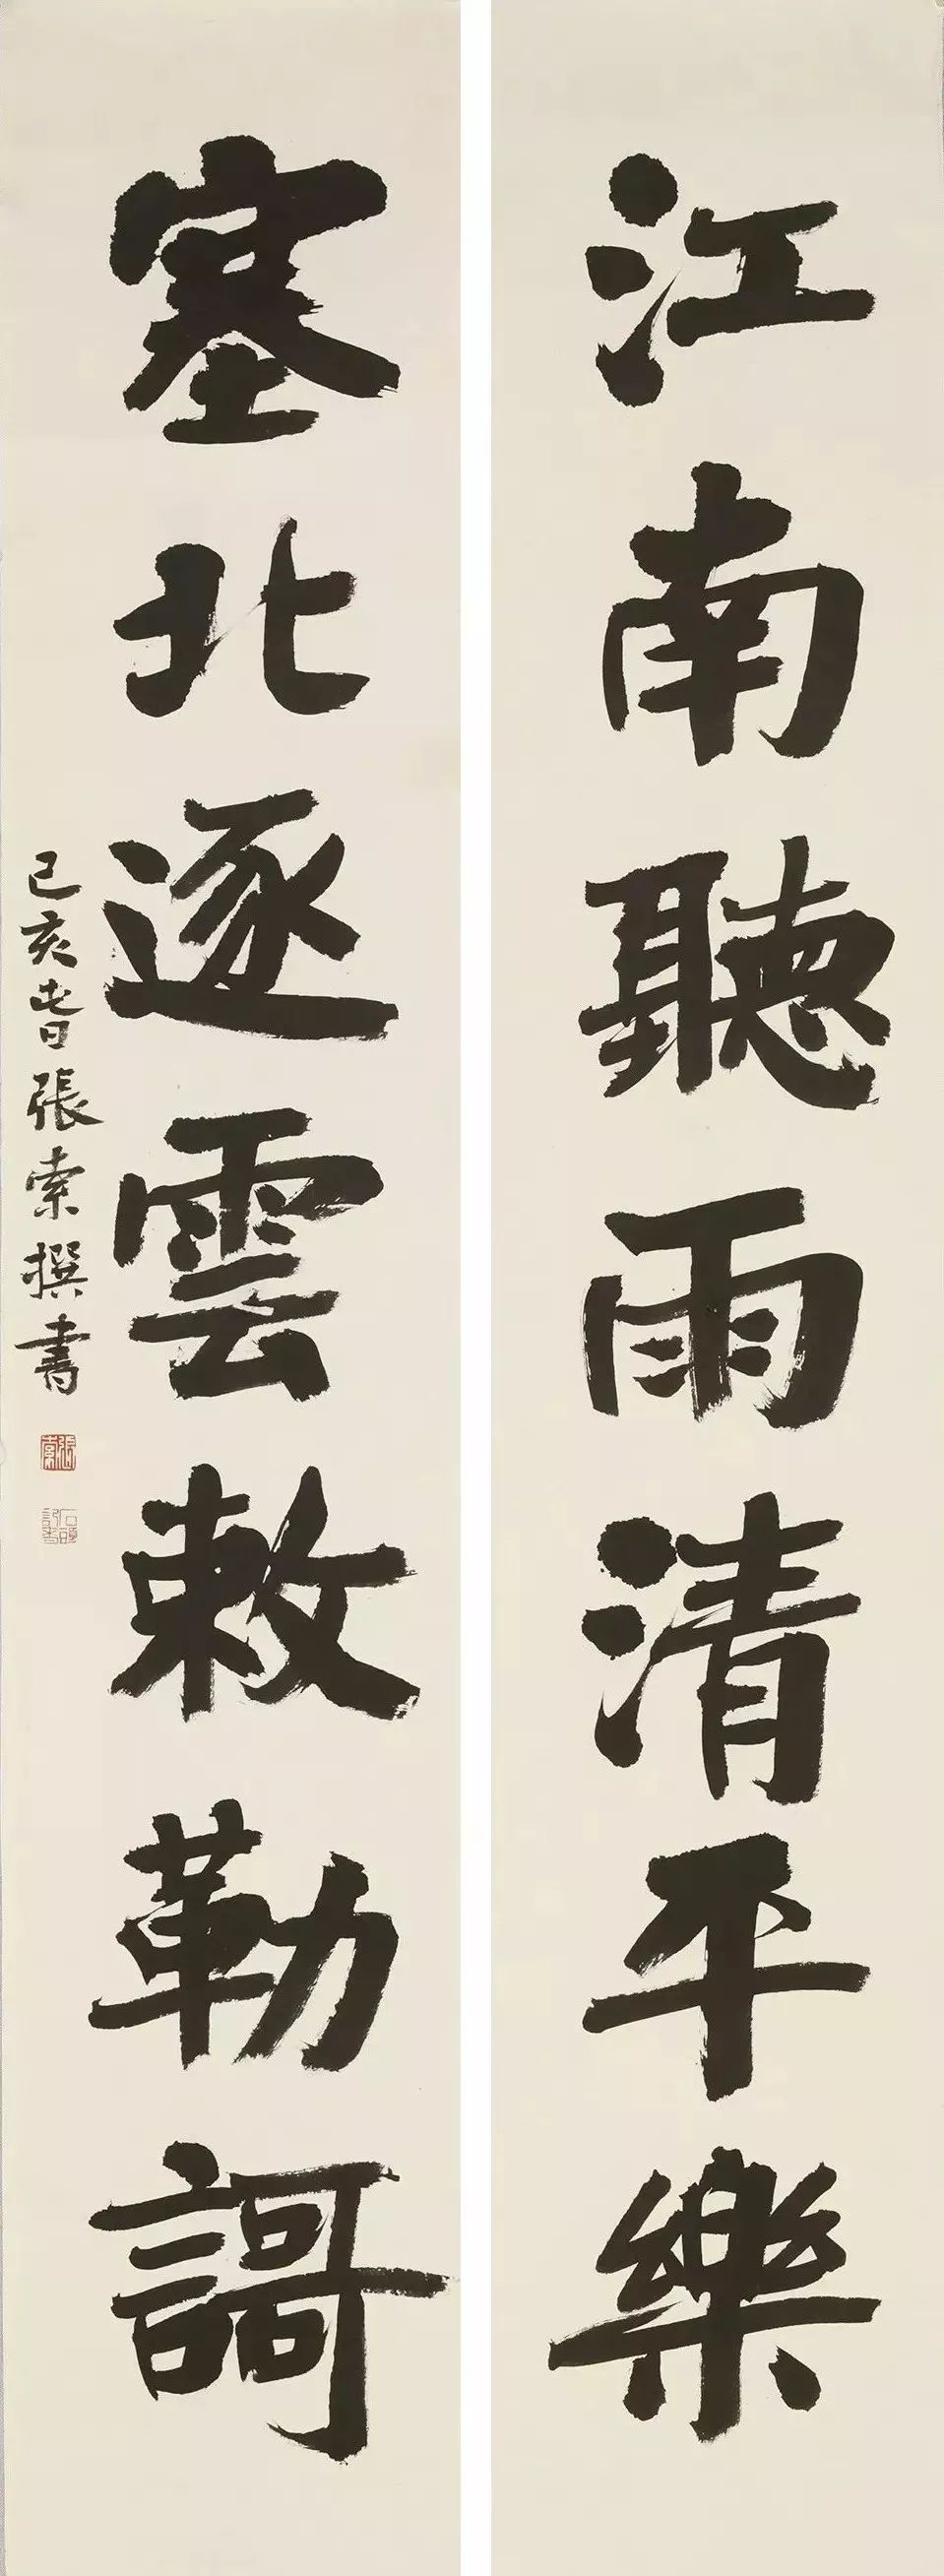 江南聽雨清平樂
塞北逐雲敕勒謌
己亥旹張索撰書
張索